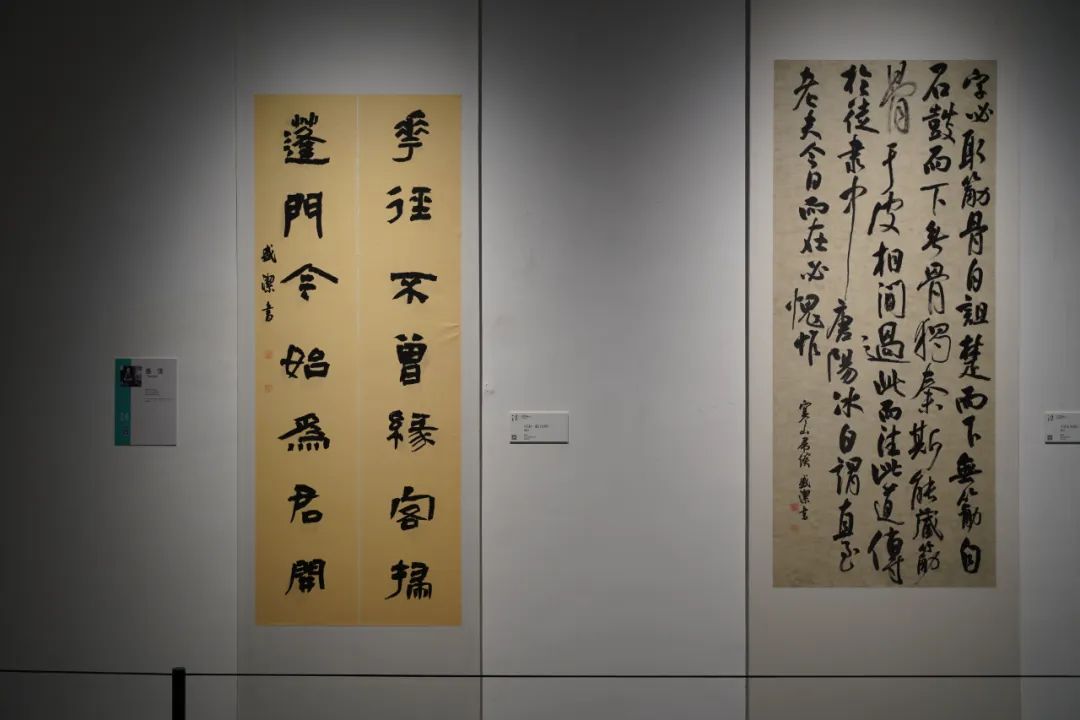 華徑不曾緣客掃
蓬門今始爲君開
盛潔書
字必取筋骨自詛楚而下無筋自
石鼓而下無骨獨秦斯能藏筋
骨于皮相間過此而往此道傳
於徒隶中唐陽冰自謂直至
老夫今日而在必愧怍
盛潔書